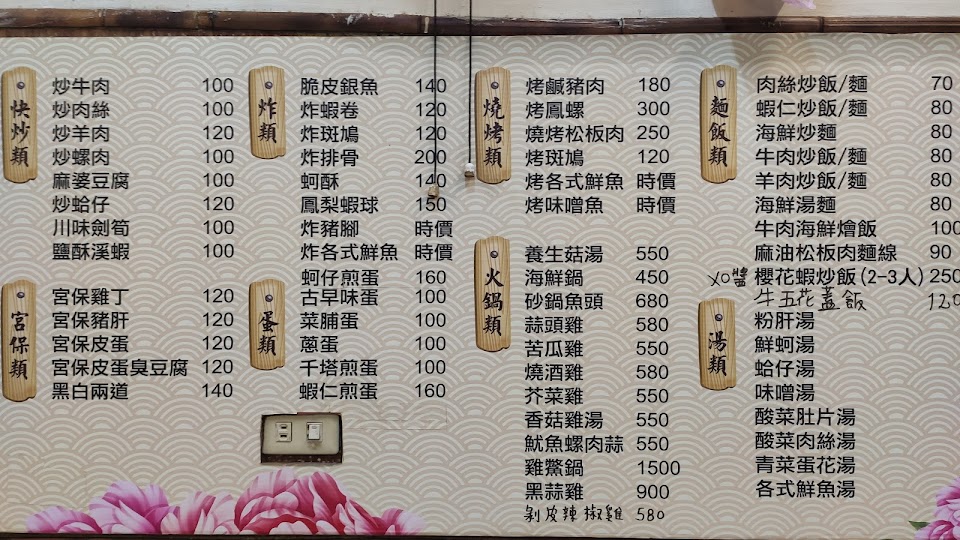 快炒類
炒牛肉 100
炒肉絲 100
炒羊肉 120
炒螺肉 100
麻婆豆腐 100
炒蛤仔 120
川味劍筍 100
鹽酥溪蝦 100
宮保類
宮保雞丁 120
宮保豬肝 120
宮保皮蛋 120
宮保皮蛋臭豆腐 120
黑白兩道 140
炸類
脆皮銀魚 140
炸蝦卷 120
炸斑鳩 120
炸排骨 200
蚵酥 140
鳳梨蝦球 150
炸豬腳 時價
炸各式鮮魚 時價
蛋類
蚵仔煎蛋 160
古早味蛋 100
菜脯蛋 100
蔥蛋 100
千塔煎蛋 100
蝦仁煎蛋 160
燒烤類
烤鹹豬肉 180
烤鳳螺 300
燒烤松板肉 250
烤斑鳩 120
烤各式鮮魚 時價
烤味噌魚 時價
火鍋類
養生菇湯 550
海鮮鍋 450
砂鍋魚頭 680
蒜頭雞 580
苦瓜雞 550
燒酒雞 580
芥菜雞 550
香菇雞湯 550
魷魚螺肉蒜 550
雞鱉鍋 1500
黑蒜雞 900
剝皮辣椒雞 580
麵飯類
肉絲炒飯/麵 70
蝦仁炒飯/麵 80
海鮮炒麵 80
牛肉炒飯/麵 80
羊肉炒飯/麵 80
海鮮湯麵 80
牛肉海鮮燴飯 100
麻油松板肉麵線 90
XO醬 櫻花蝦炒飯(2-3人) 250
牛五花蓋飯 120
湯類
粉肝湯
鮮蚵湯
蛤仔湯
味噌湯
酸菜肚片湯
酸菜肉絲湯
青菜蛋花湯
各式鮮魚湯